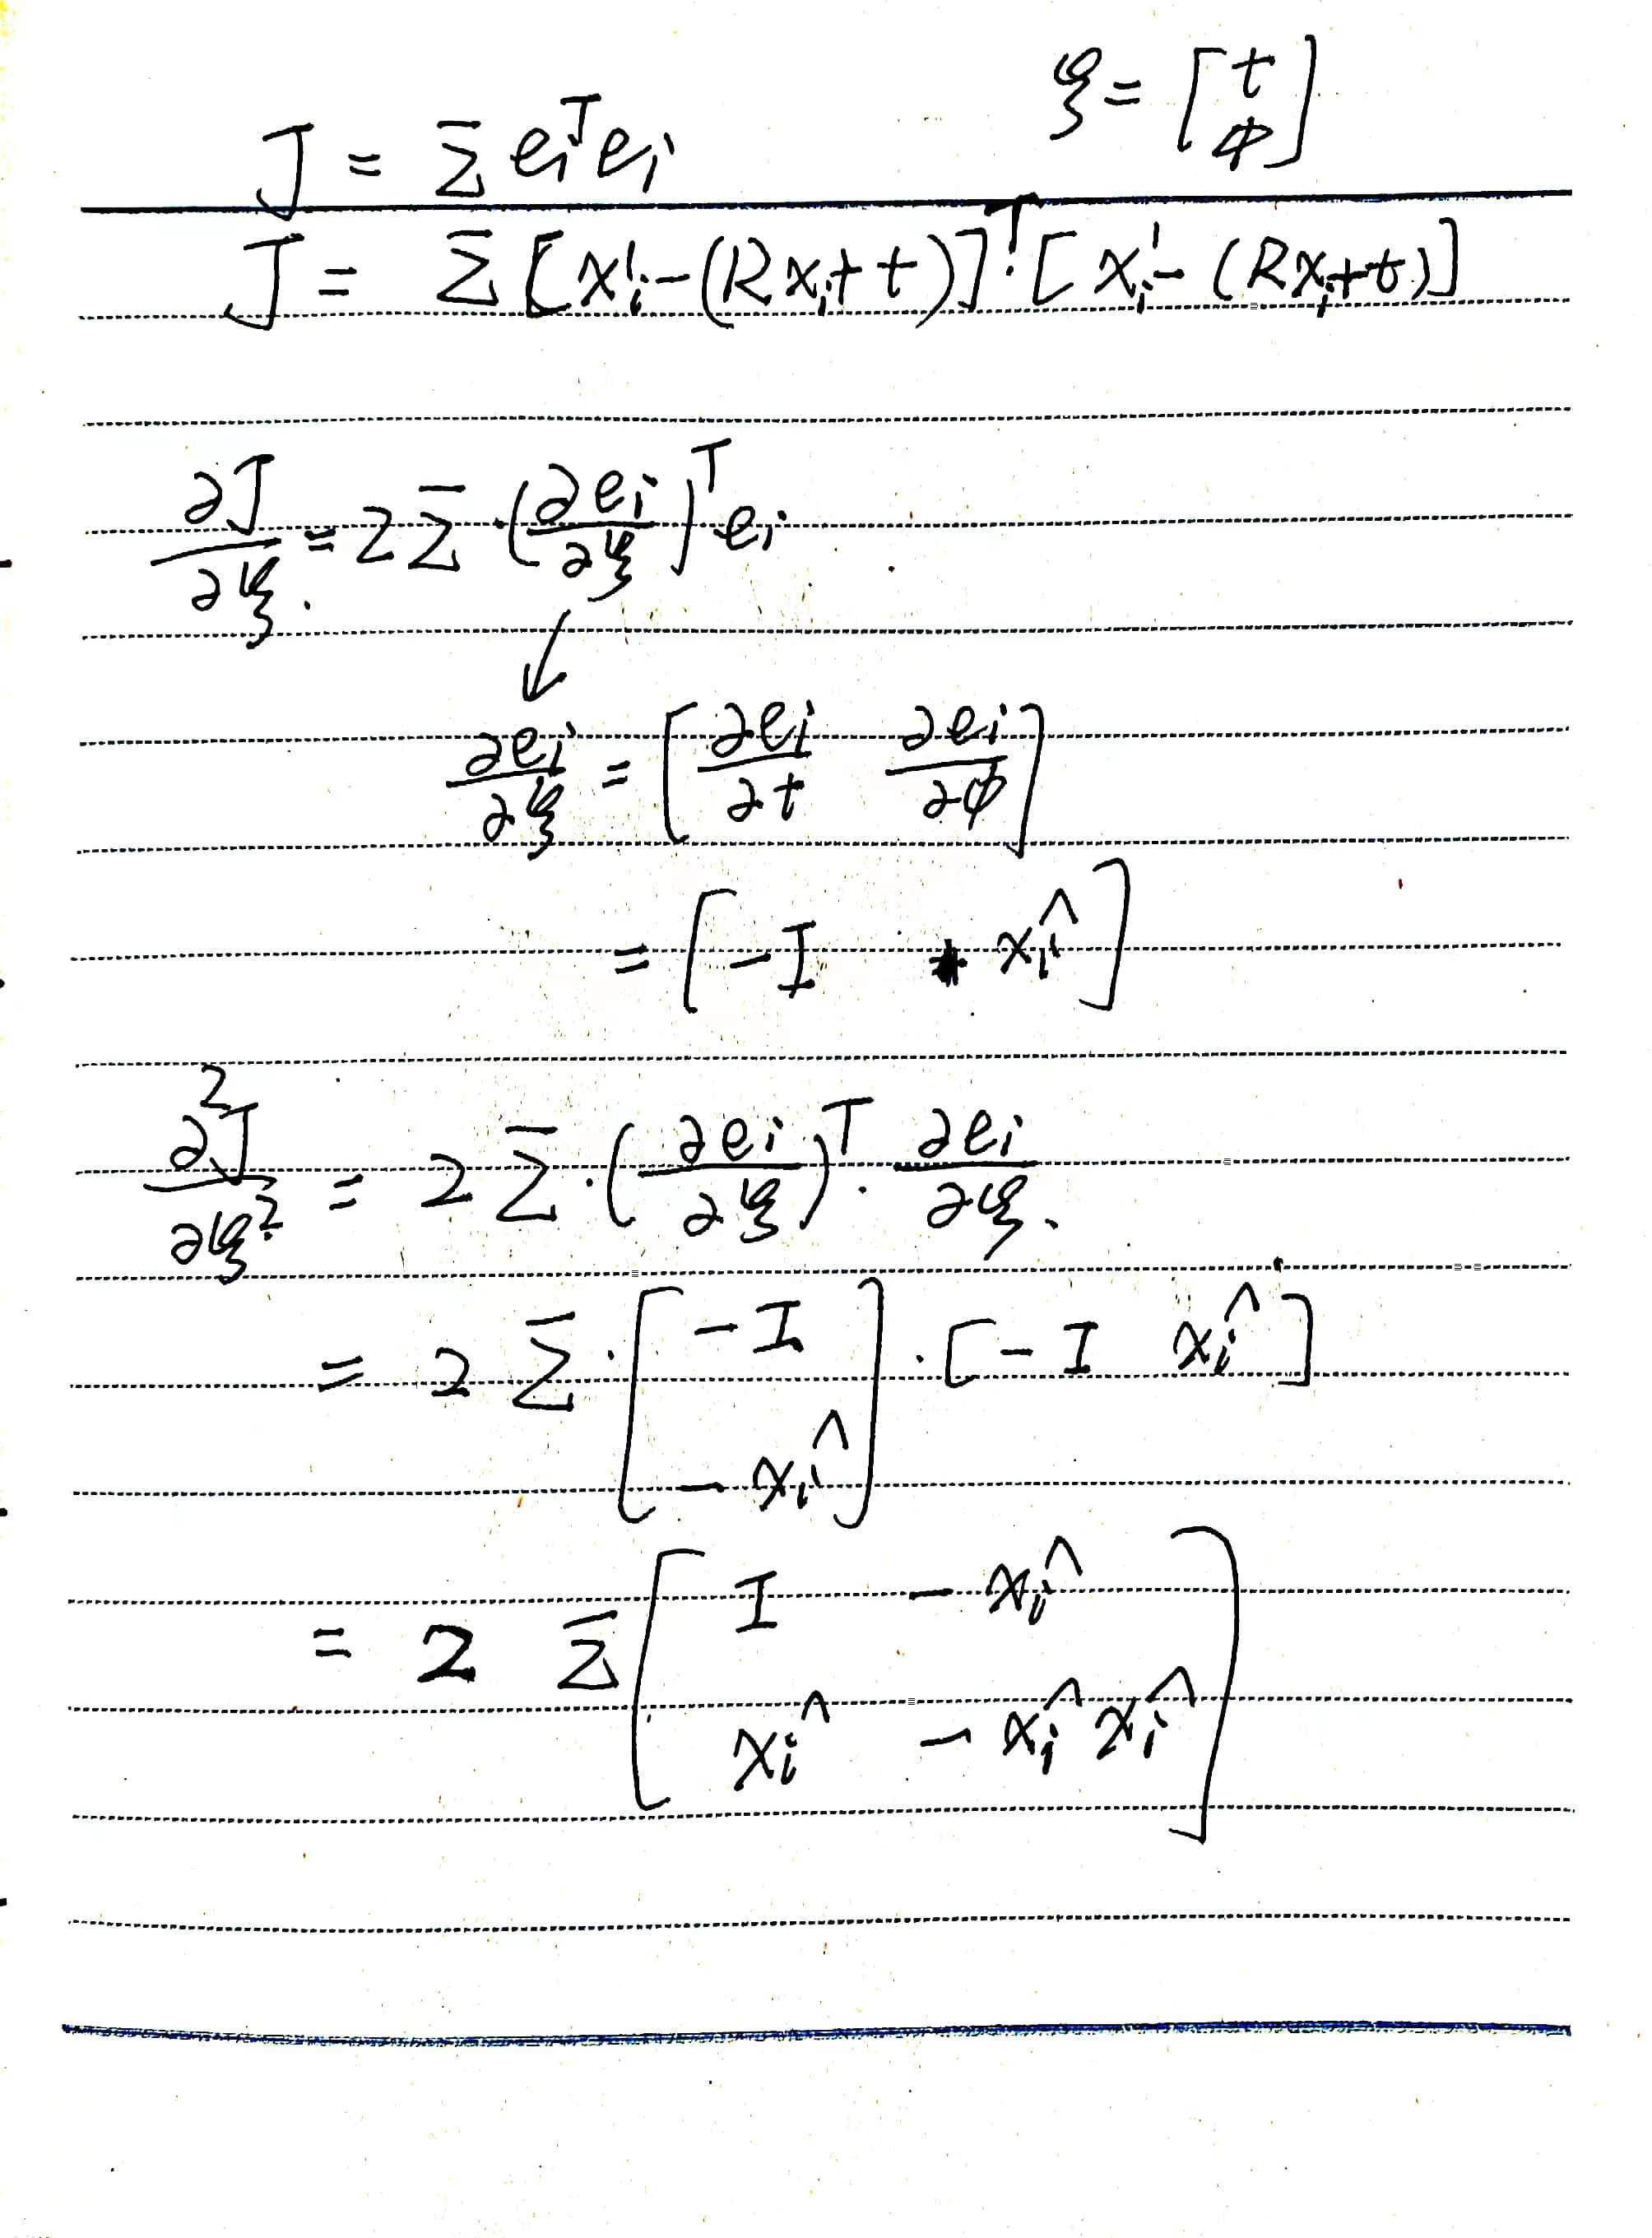 ξ = [t φ]
J = Σ eᵢᵀ eᵢ
J = Σ [xᵢ' - (Rxᵢ + t)]ᵀ · [xᵢ' - (Rxᵢ + t)]
∂J/∂ξ = 2 Σ · (∂eᵢ/∂ξ)ᵀ eᵢ
↓
∂eᵢ/∂ξ = [∂eᵢ/∂t ∂eᵢ/∂φ]
= [-I xᵢ^]
∂²J/∂ξ² = 2 Σ · (∂eᵢ/∂ξ)ᵀ · ∂eᵢ/∂ξ.
= 2 Σ · [-I; -xᵢ^] · [-I xᵢ^]
= 2 Σ [I -xᵢ^; xᵢ^ -xᵢ^ xᵢ^]